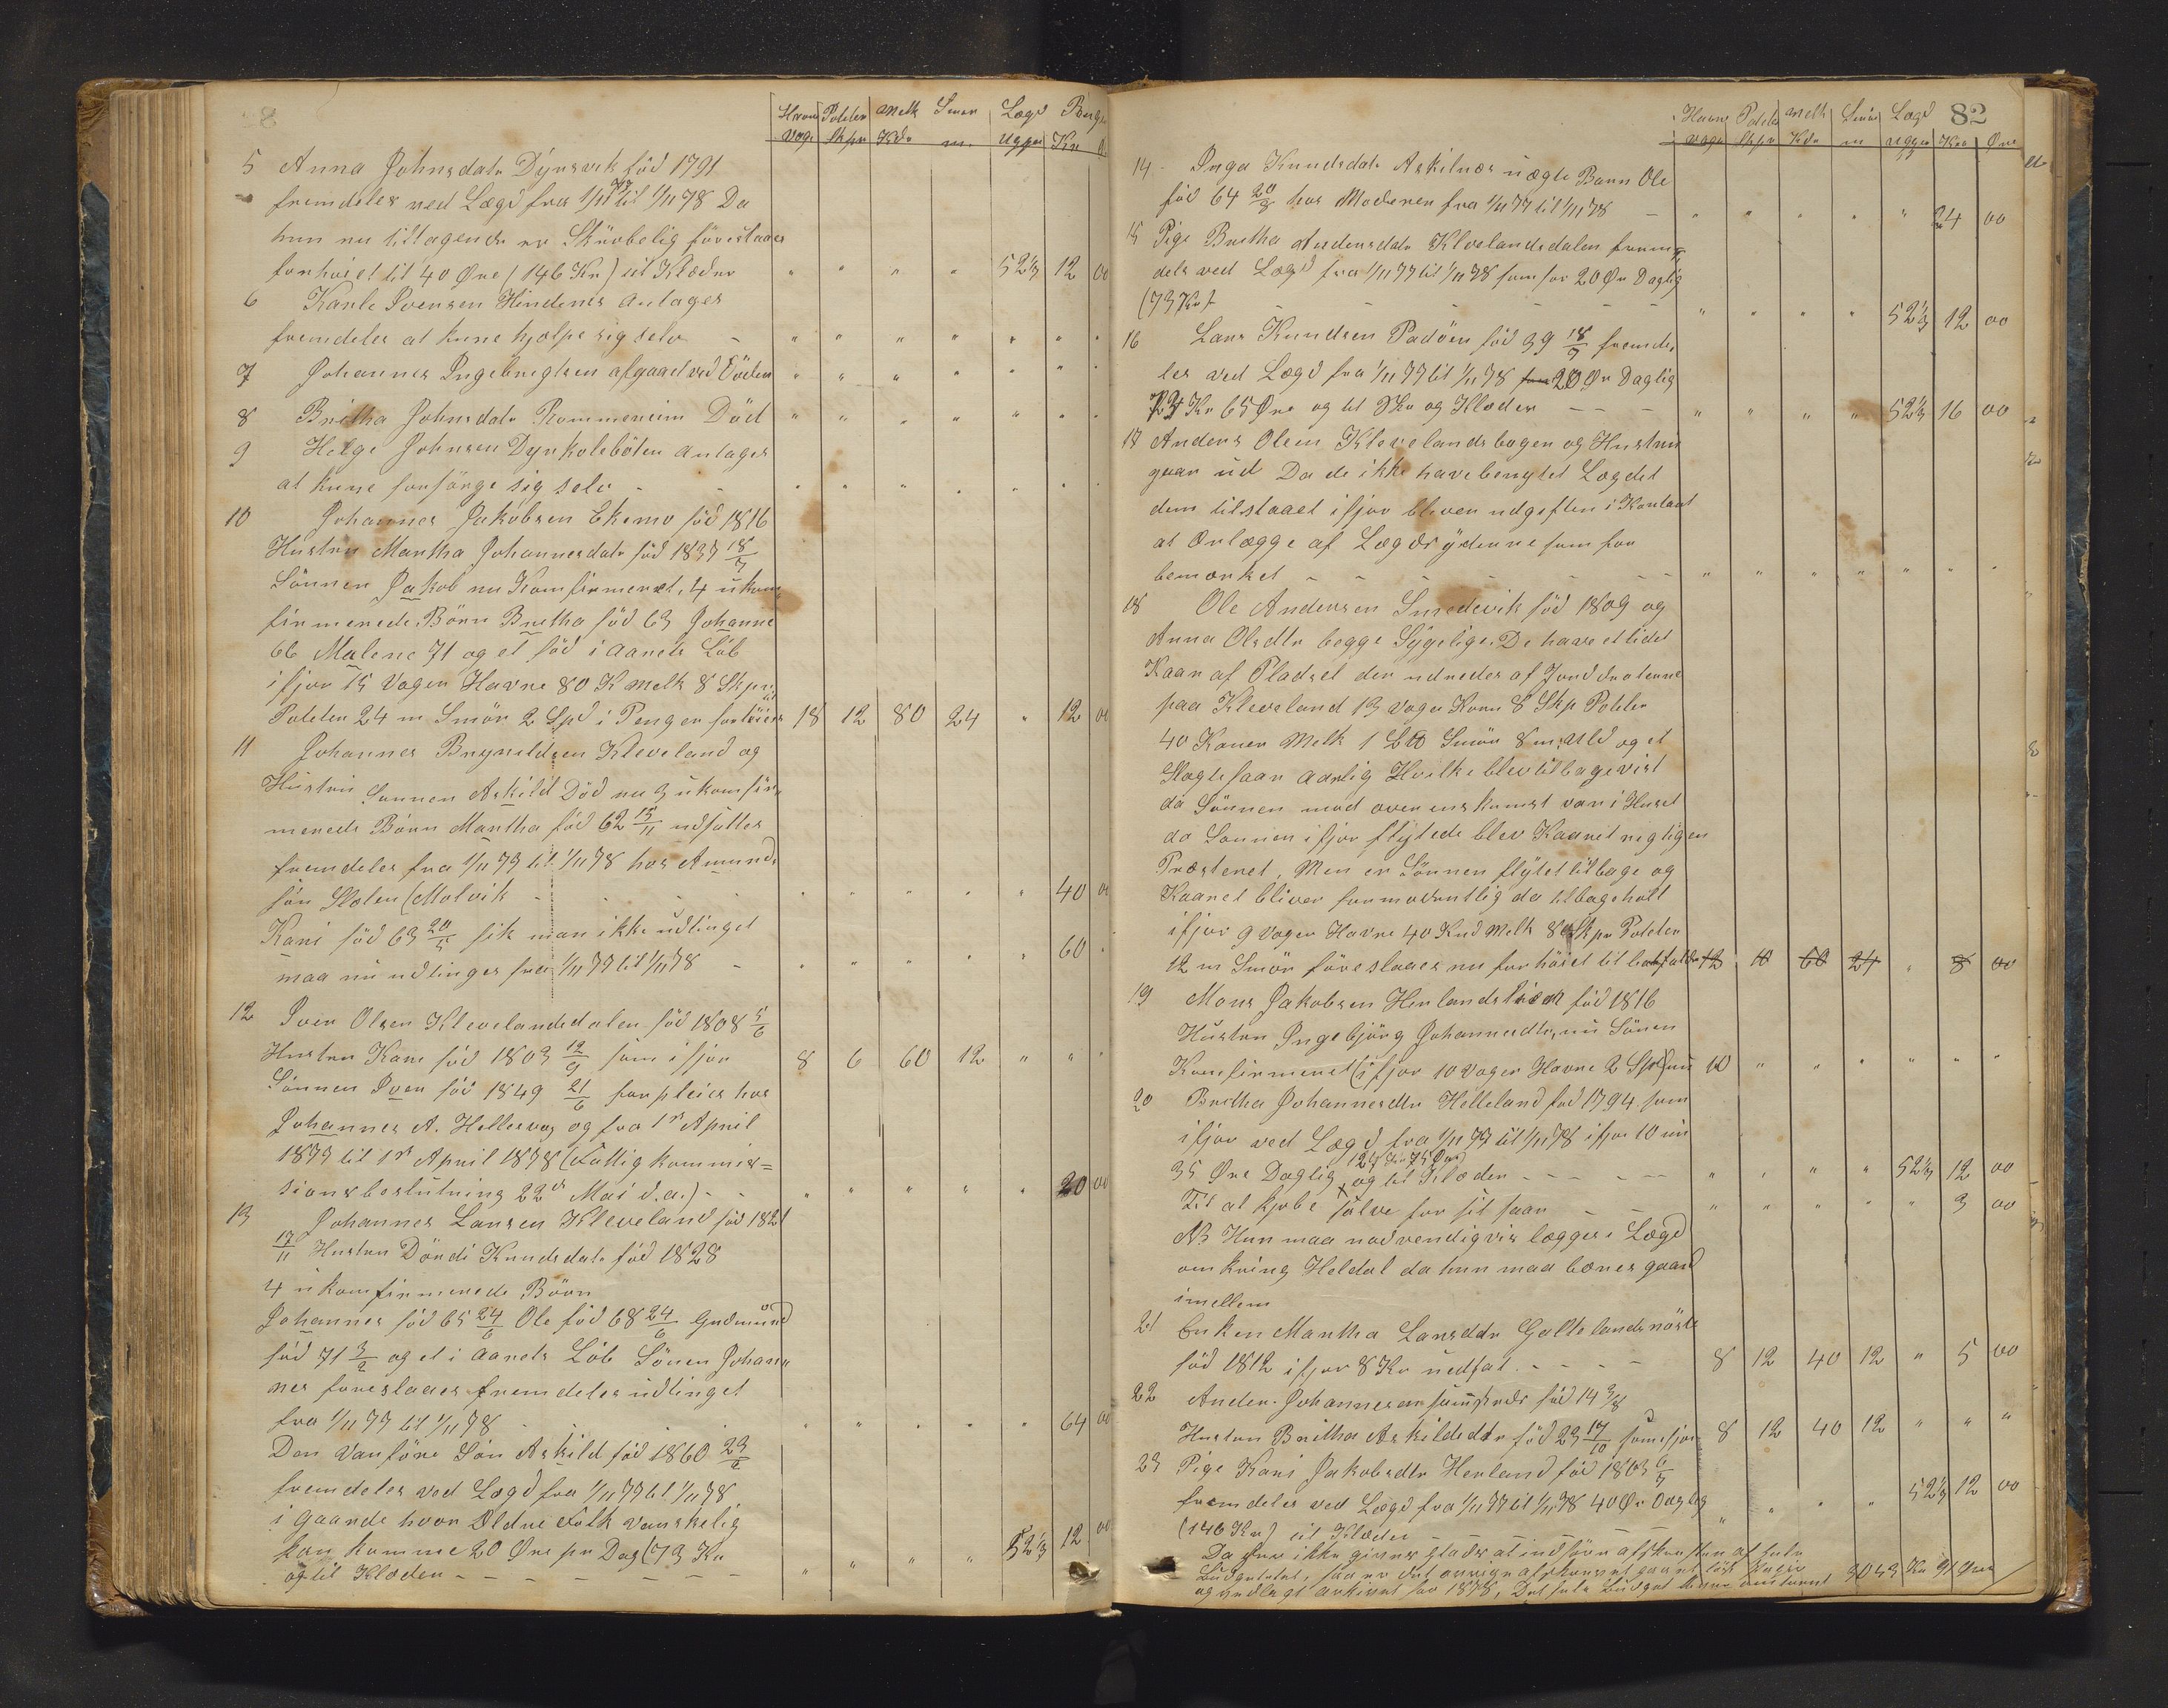 Havre Poteter Melk Smør Lægd Penge
Vage Skpr Kdr m. Ugger Kr
5 Anna Johnsdatr Dynsvik föd 1791
fremdeles ved Lægd fra 1/11 77 til 1/11 78 Da
hun nu tiltagende er Skrøbelig föreslaaes
forhöiet til 40 Øre (146 Kr) til Klæder " " " " 52 1/3 12 00
6 Karle Svensen Hindenes antages
fremdeles at kune hjælpe sig selv - " " " " " " "
7 Johannes Ingebregtsen afgaaet ved Döden " " " " " " "
8 Britha Johnsdatr Rommereim Död " " " " " " "
9 Helge Johnsen Dyrkoleböten antages
at kune forsörge sig selv - - " " " " " " "
10 Johannes Jakobsen Ekemo föd 1816
Hustru Martha Johannesdatr föd 1837 18/7
Sönnen Jakob nu Konfirmeret, 4 ukon,
firmerede Börn Britha föd 63 Johanne
66 Malene 71 og et föd i Aarets Löb
ifjor 15 Voger Havre 80 K Melk 8 Skpr
Poteter 24 m Smör 2 Spd i Penger forhöies til 18 12 80 24 " 12 00
11 Johannes Brynildsen Kleveland og
Hustru Sønnen Askild Död nu 3 ukonfir,
merede Börn Martha föd 62 15/11 udsættes
fremdeles fra 1/11 77 til 1/11 78 hos Amund,
sön Slolen (Molvik - - - - " " " " " 40 00
Kari föd 63 20/5 fik man ikke udtinget
maa nu udtinges fra 1/11 77 til 1/11 78 - " " " " " 60 "
12 Sven Olsen Klevelandsdalen föd 1808 5/6
Hustru Kari föd 1803 12/9 som ifjor 8 6 60 12 " " "
Sönnen Sven föd 1849 21/6 forpleies hos
Johannes A. Hellesvog og fra 1st April
1877 til 1st April 1878 (Fattigkommis=
sionsbeslutning 22de Mai d.a.) - - " " " " " 20 00
13 Johannes Larsen Kleveland föd 1821
17/11 Hustru Döndi Knudsdatr föd 1828
4 ukonfirmerede Börn
Johannes föd 65 24/6 Ole föd 68 24/6 Gudmund
föd 71 3/2 og et i Aarets Löb Sönen Johan,
nes foreslaaes fremdeles udtinget
fra 1/11 77 til 1/11 78 " " " " " 64 00
Den Vanföre Sön Askild föd 1860 23/2
fremdeles ved Lægd fra 1/11 77 til 1/11 78
i gaarde hvor Ældre Folk vanskelig
kan komme 20 Øre pr Dag (73 Kr
og til Klæder - - - - - - - " " " " 52 1/3 12 00
82
Havre Poteter Melk Smör Lægd
Voge Skpr Kdr m Ugger Kr Øre
14 Inga Knudsdatr Askilnes uægte Barn Ole
föd 64 20/8 hos Moderen fra 1/11 77 til 1/11 78 - " " " " " 24 00
15 Pige Britha Andersdatr Klevelandsdalen frem,
dels ved Lægd fra 1/11 77 til 1/11 78 som for 20 Ør Daglig
(73 Kr) - - - - - - " " " " 52 1/3 12 00
16 Lars Knudsen Padöen föd 39 18/7 fremde,
les ved Lægd fra 1/11 77 til 1/11 78 20 Ør Daglig
Kr 65 Øre og til Sko og Klæder - - - " " " " 52 1/3 16 00
17 Anders Olsen Klevelandsbogen og Hustru
gaar ud Da de ikke have benyttet Lægdet
dem tilstaaet ifjor bliver udgiften i Kontant
at Ærlægge af Lægdsyderne som for
bemærket - - - - - - " " " " " " "
18 Ole Andersen Smedevik föd 1809 og
Anna Olsdtr begge Sygelige. De have et lidet
Kaar af Pladset der udredes af Jorddroterne
paa Kleveland 13 Voger Korn 8 Skp Poteter
40 Kaner Melk 1 L℔ Smör 8 m. Uld og et
Slagtefaar Aarlig Hvilke blev tilbagevist
da Sönnen mod overenskomst var i Huset
da Sønnen ifjor flytede blev Kaaret rigtigen
Præsteret, Men er Sönnen flytet tilbage og
Kaaret bliver formodentlig da tilbageholt
ifjor 9 Voger Havre 40 Knd Melk 8 Skpr Poteter
12 m Smör föreslaaes nu forhöiet til 12 10 60 24 " 8 00
19 Mons Jakobsen Herlandslien föd 1816
Hustru Ingebjörg Johannesdtr, nu Sönen
Konfirmeret (ifjor 10 Voger Havre 2 Spd) nu 10 " " " " " "
20 Britha Johannesdtr Helleland föd 1794 som
ifjor ved Lægd fra 1/11 77 til 1/11 78 ifjor 10 nu
35 Øre Daglig 127 Kr 75 Øre og til Klæder - - - - - " " " " 52 1/3 12 00
Til at kjobe salve for sit saar - - " " " " " 3 00
NB Hun maa nødvendigvis lægges i Lægd
omkring Heldal da hun maa bæres gaard
imellem
21 Enken Martha Larsddr Galtelandsnöste
föd 1812 ifjor 8 Kr nedsat - - - - 8 12 40 12 " 5 00
22 Anders Johannesen föd 14 3/8
Hustru Britha Askildsdtr föd 23 17/10 som ifjor 8 12 40 12 " " "
23 Pige Kari Jakobsdtr Herland föd 1863 6/7
fremdeles ved Lægd fra 1/11 77 til 1/11 78 40 Ør Daglig
(146 Kr) til Klæder - - - - " " " " 52 1/3 12 00
Da her ikke gives Plads at indföre afskriften af hele
Budgettet, saa er det övrige
og vedlagt arkivet for 1878, Det hele Budget 3043 Kr 91 Øre